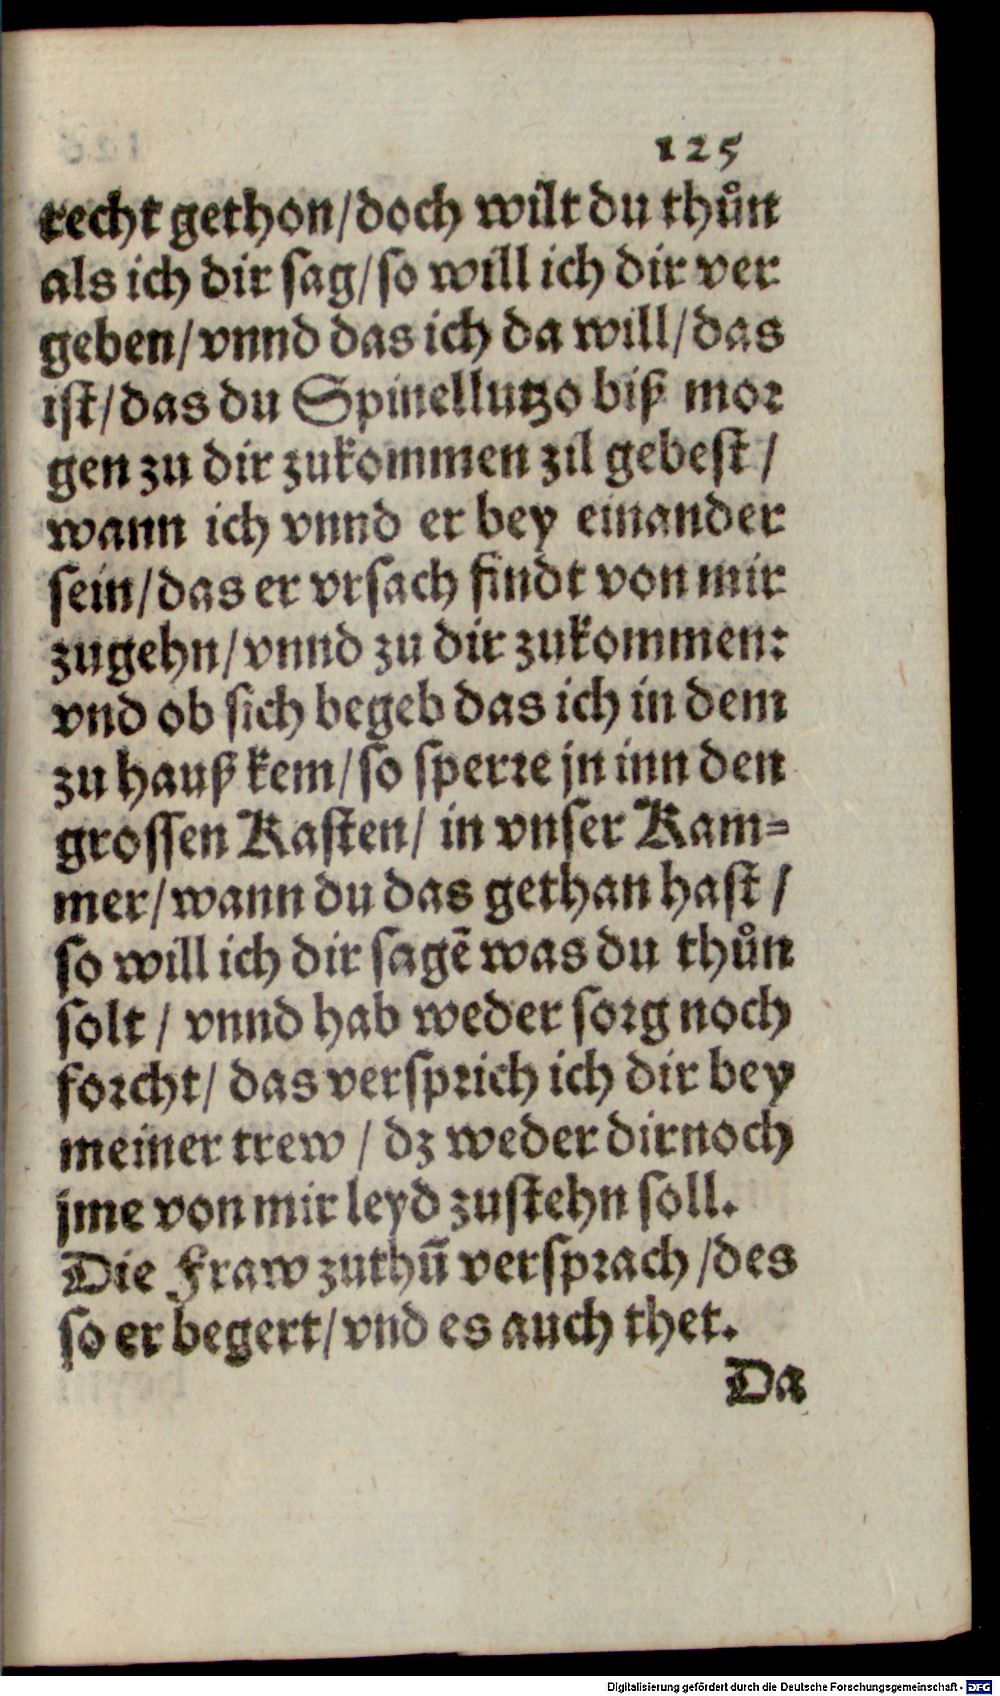 125
recht gethon/doch wilt du thůn
als ich dir sag/so will ich dir ver
geben/vnnd das ich da will/das
ist/das du Spinellutzo biß mor
gen zu dir zukommen zil gebest/
wann ich vnnd er bey einander
sein/das er vrsach findt von mir
zugehn/vnnd zu dir zukommen:
vnd ob sich begeb das ich in dem
zu hauß kem/so sperre jn inn den
grossen Kasten/ in vnser Kam=
mer/wann du das gethan hast/
so will ich dir sagē was du thůn
solt/ vnnd hab weder sorg noch
forcht/ das versprich ich dir bey
meiner trew/ dz weder dir noch
jme von mir leyd zustehn soll.
Die Fraw zuthū versprach/des
so er begert/vnd es auch thet.
Da
Digitalisierung gefördert durch die Deutsche Forschungsgemeinschaft - DFG